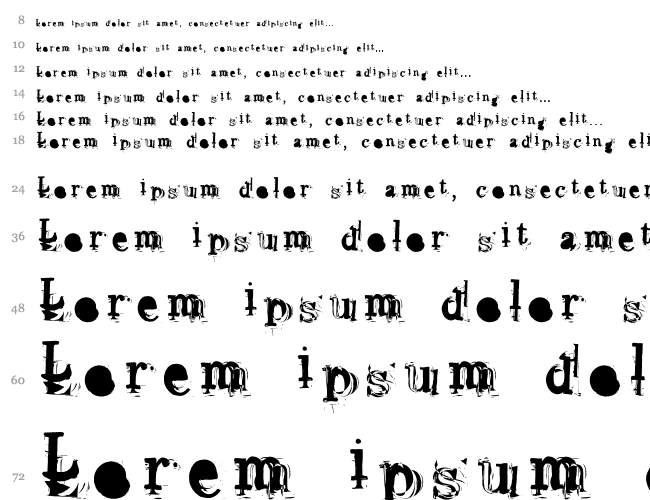 8 Lorem ipsum dolor sit amet, consectetuer adipiscing elit...
10 Lorem ipsum dolor sit amet, consectetuer adipiscing elit...
12 Lorem ipsum dolor sit amet, consectetuer adipiscing elit...
14 Lorem ipsum dolor sit amet, consectetuer adipiscing elit...
16 Lorem ipsum dolor sit amet, consectetuer adipiscing elit...
18 Lorem ipsum dolor sit amet, consectetuer adipiscing eli
24 Lorem ipsum dolor sit amet, consectetuer
36 Lorem ipsum dolor sit amet
48 Lorem ipsum dolor s
60 Lorem ipsum dol
72 Lorem ipsum